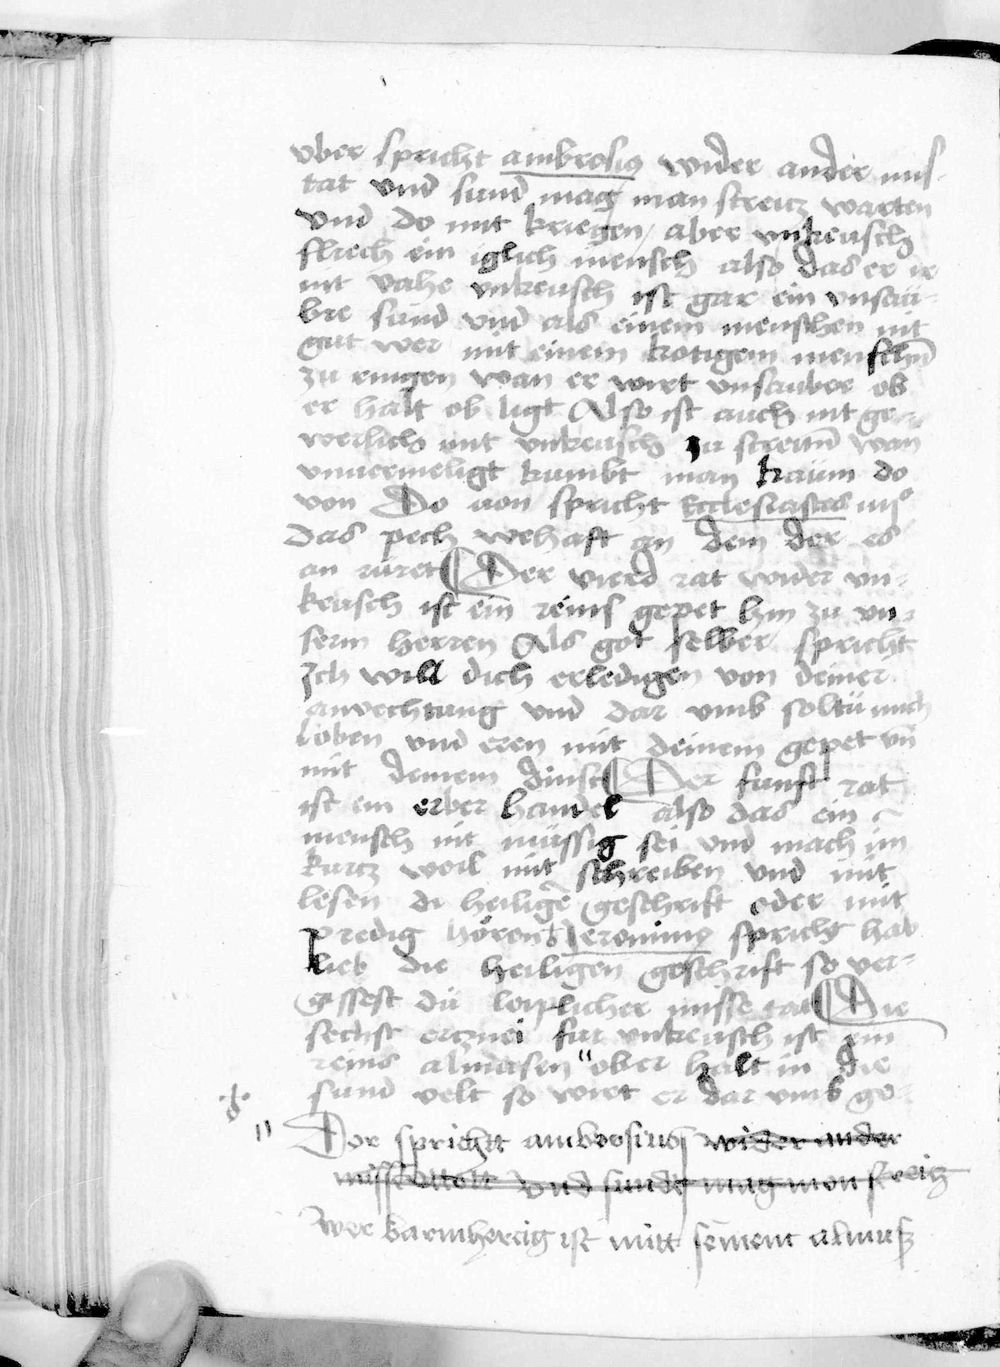 vber spricht ambrosius wider ander mis-
tat vnd sund mag man streitz warten
vnd do mit kriegen / aber vnkeusch
fliech ein iglich mensch also das er ir
nit vahe vnkeusch ist gar ein vnsau-
bre sund vnd als einem menschen nit
gut wer mit einem kotigem menschn̄
zu ringen wan er wirt vnsauber ob
er halt ob ligt Also ist auch nit ge-
werlich mit vnkeusch zu streitn̄ wan
vnuermeligt kumbt man kaum do
von Do uon spricht Ecclesiasticus
das pech wehaft an dem der es
an ruret Der vierd rat wider vn-
keusch ist ein reins gepet hin zu vn-
serm herren Als got selber spricht
Ich will dich erledigen von deiner
anvechtung vnd dar vmb soltu mich
loben vnd eren mit deinem gepet vn̄
mit deinem dinst Der funft rat
ist ein erber handel also das ein
mensch nit müssig sei vnd mach im
kurtz weil mit schreiben vnd mit
lesen di heilige geschrift oder mit
predig hören Jeronimus spricht hab
lieb die heiligen geschrift so ver-
gissest du leiplicher misse tat Die
sechst ercznei fur vnkeusch ist ein
reins almusen " ober halt in die
sund velt so wirt er dar vmb ge-
" Dor sprichtt ambrosius wider ander
missettott vnd sundt mag mon streitz
wer barmherczig ist mitt seinem almusz